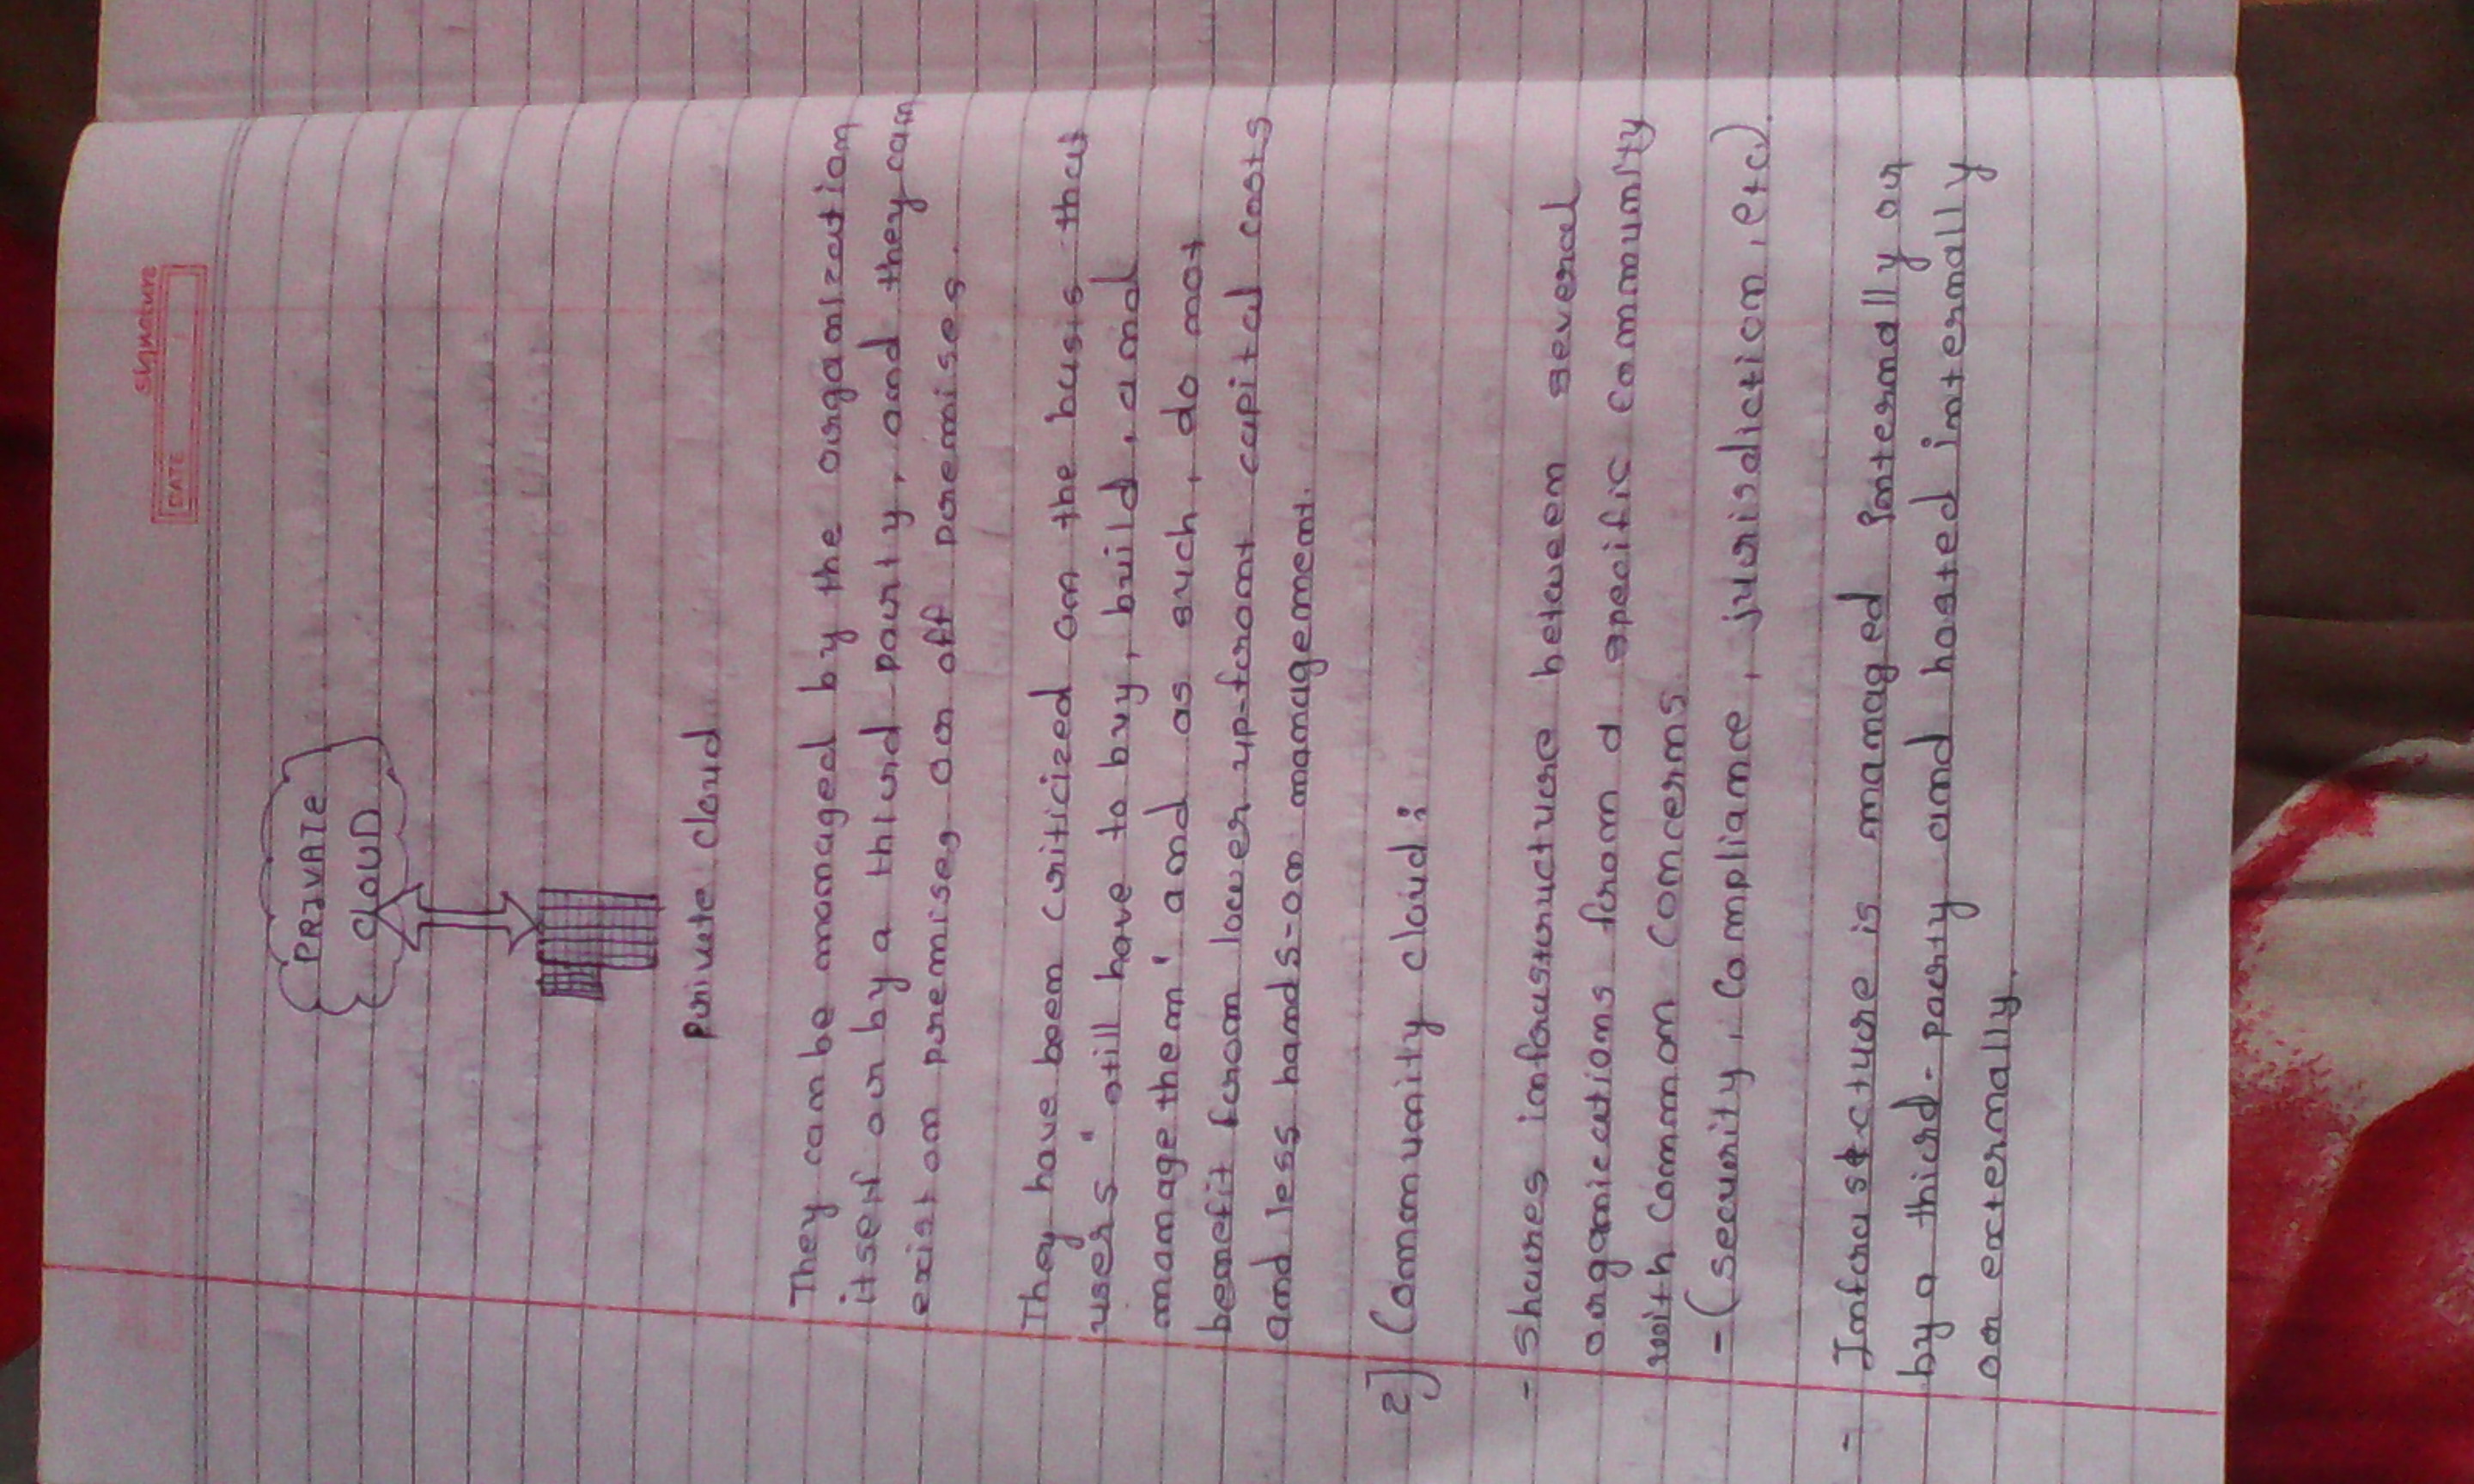 Signature
DATE
PRIVATE
CLOUD
Private cloud
They can be managed by the organization
itself or by a third party, and they can
exist on premises or off premises.
They have been criticized on the basis that
users "still have to buy, build, and
manage them" and as such, do not
benefit from lower up-front capital costs
and less hands-on management.
2] Community cloud:
- Shares infrastructure between several
organizations from a specific community
with common concerns.
- (security, compliance, jurisdiction, etc).
- Infrastcture is managed internally or
by a third-party and hosted internally
or externally.